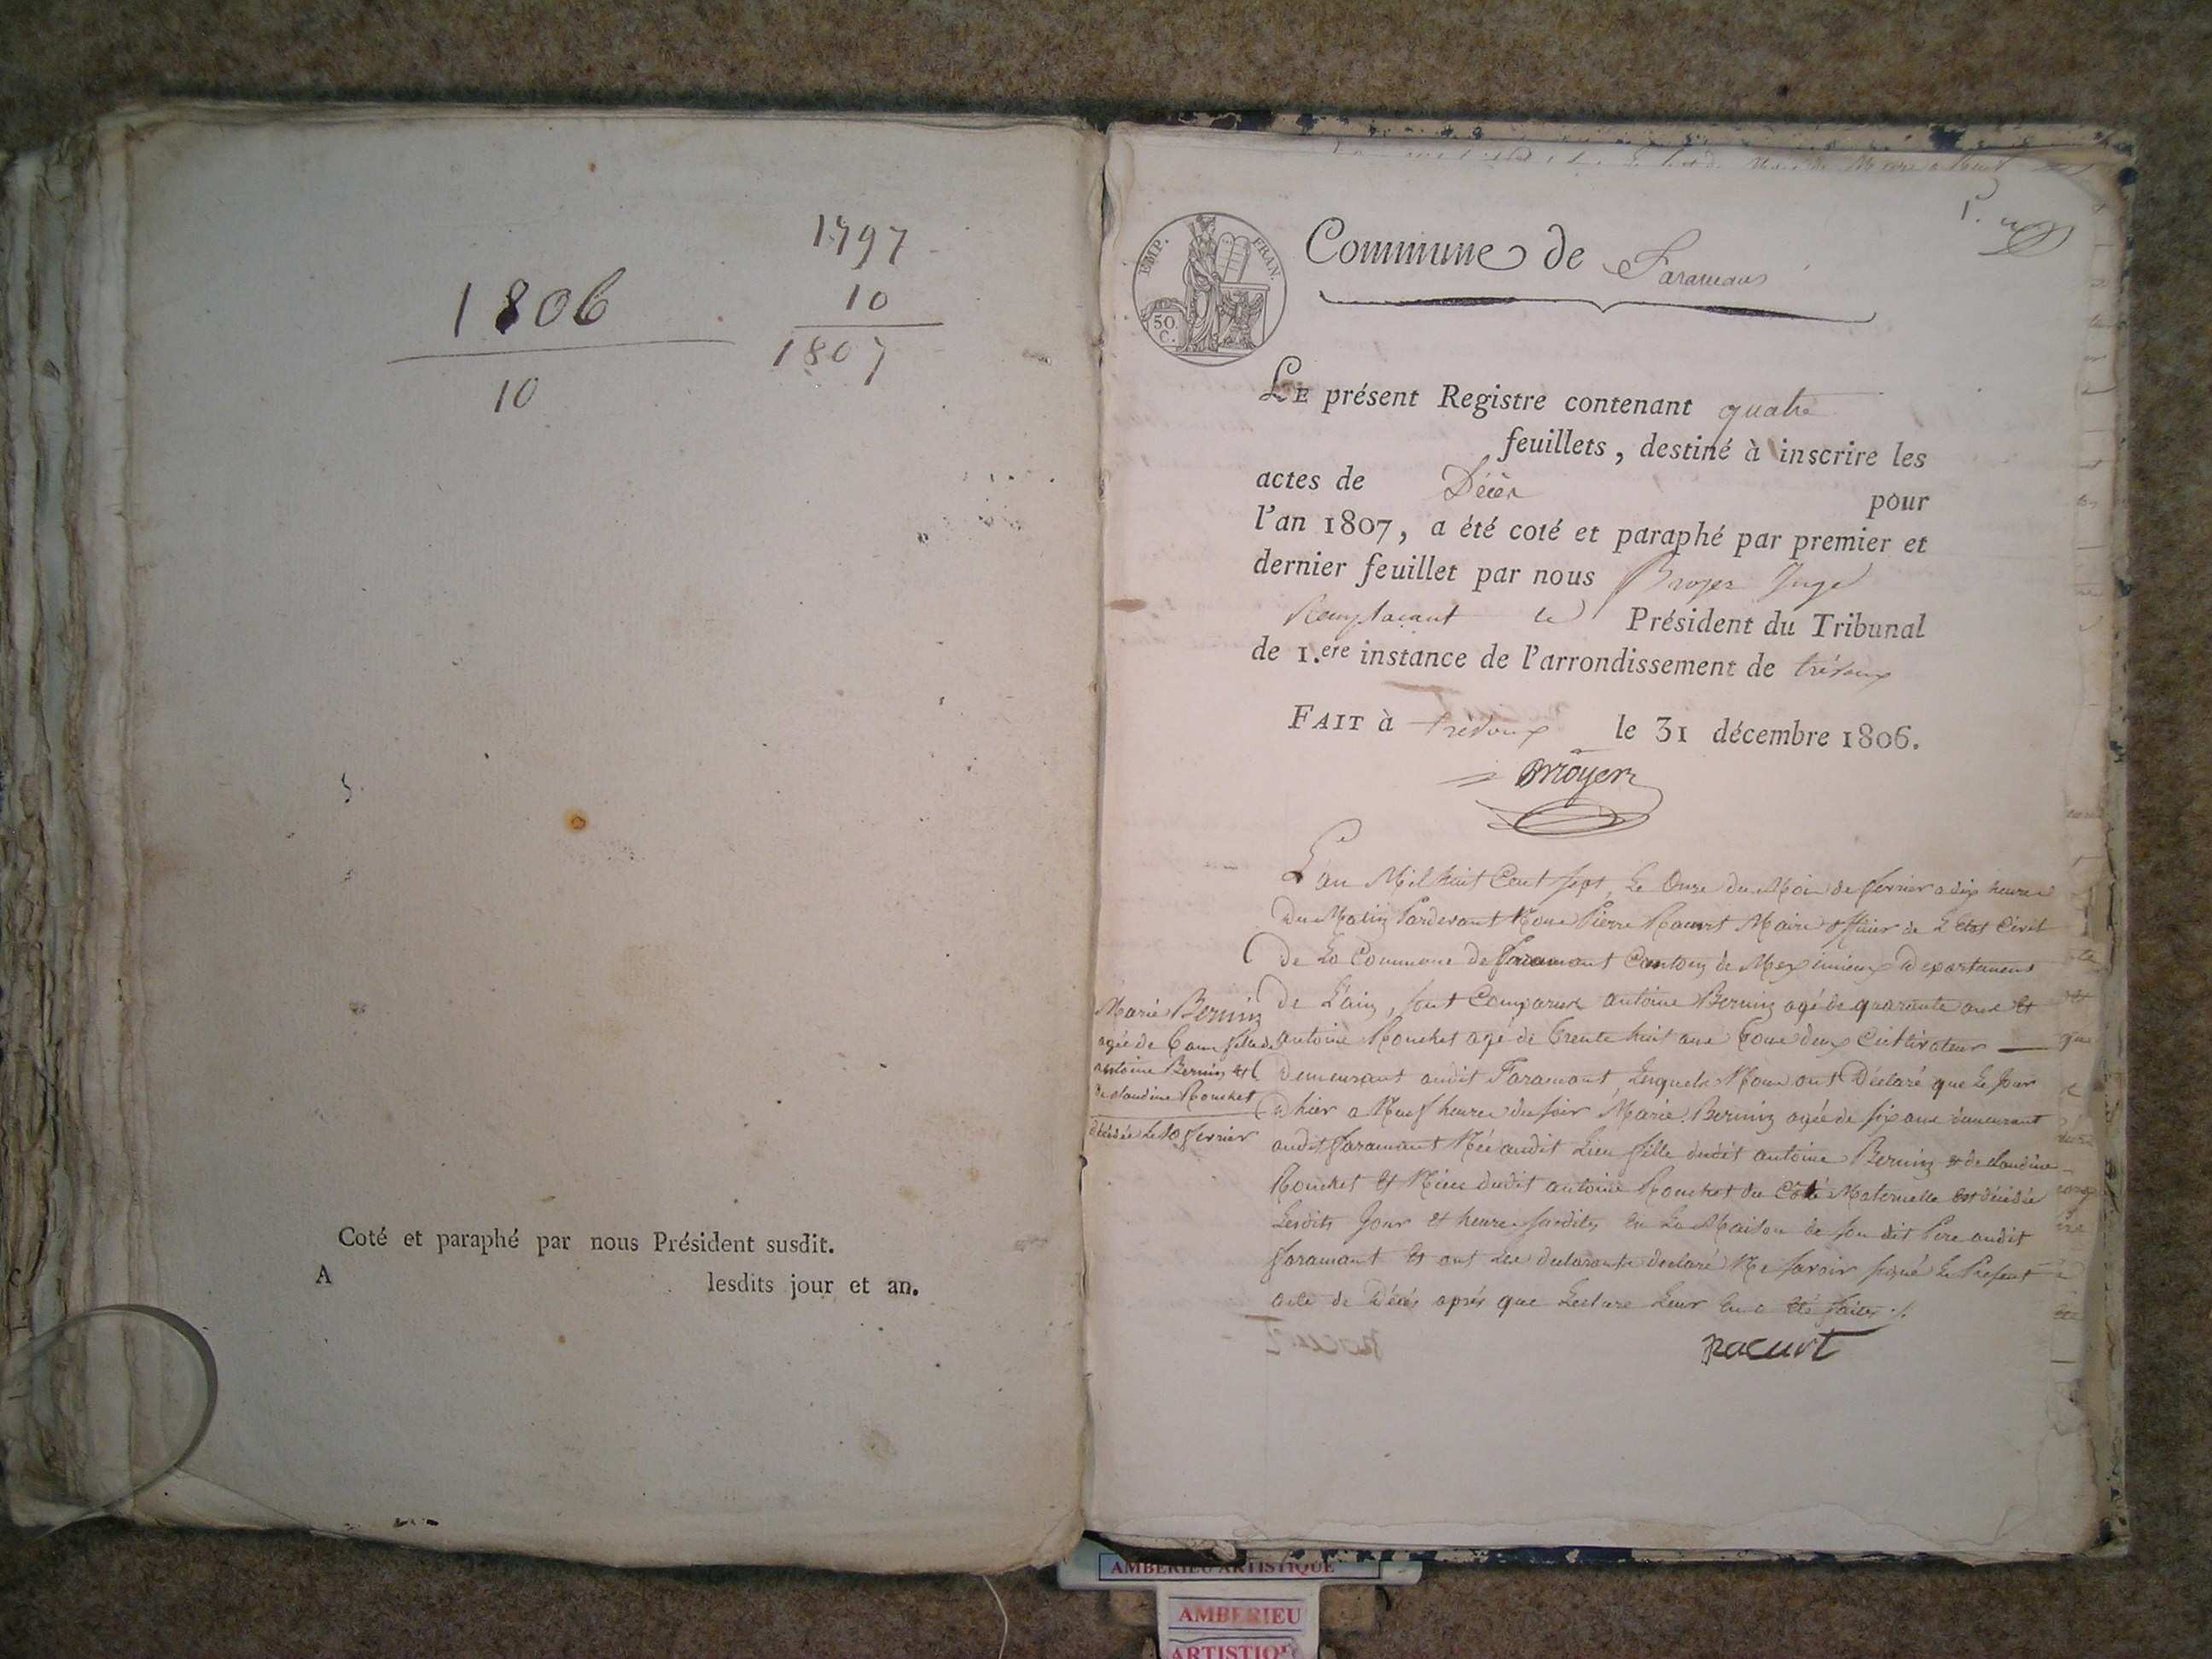 1806
10
1797
10
1807
Coté et paraphé par nous Président susdit.
A lesdits jour et an.
EMP. FRAN.
50 C.
Commune de Faramans
LE présent Registre contenant quatre
feuillets, destiné à inscrire les
actes de Décès pour
l'an 1807, a été coté et paraphé par premier et
dernier feuillet par nous Broyer Juge
Remplacant le Président du Tribunal
de 1.ere instance de l'arrondissement de trévoux
FAIT à trévoux le 31 décembre 1806.
Broyer
L'an Mil huit Cent Sept, Le Onze du Mois de fevrier a dix heures
Du Matin Pardevant Nous Pierre Racurt Maire officier de L'Etat Civil
De La Commune de faramant Canton de Meximieux Departement
De L'ain, sont Comparus antoine Bernin agé de quarante ans Et
antoine Rouchet agé de trente huit ans tous deux Cultivateur
Demeurant audit Faramant, Lesquels Nous ont Déclaré que Le Jour
D'hier a Neuf heures du soir Marie Bernin agée de six ans demeurant
audit faramant Née audit Lieu fille dudit antoine Bernin & de Claudine
Rouchet Et Niece dudit antoine Rouchet du Côté Maternelle est décédée
Lesdits Jour et heure susdits, En La Maison de son dit Pere audit
faramant Et ont Les declarants declaré Ne savoir signé Le Present
acte de Décés aprés que Lecture Leur En a été faite ./.
Racurt
Marie Bernin
agée de 6 ans fille de
antoine Bernin et
de Claudine Rouchet
décédée Le 10 fevrier
AMBERIEU ARTISTIQUE
AMBERIEU
ARTISTIQUE